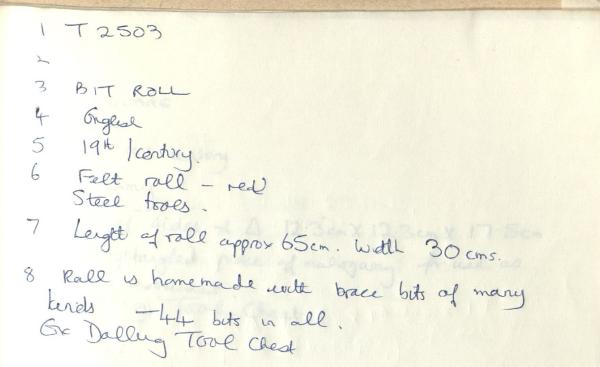 1 T 2503
2
3 BIT ROLL
4 English
5 19th /century.
6 Felt roll – red
Steel tools.
7 Length of roll approx 65cm. Width 30 cms.
8 Roll is homemade with brace bits of many
kinds – 44 bits in all.
Ex Dalling Tool Chest